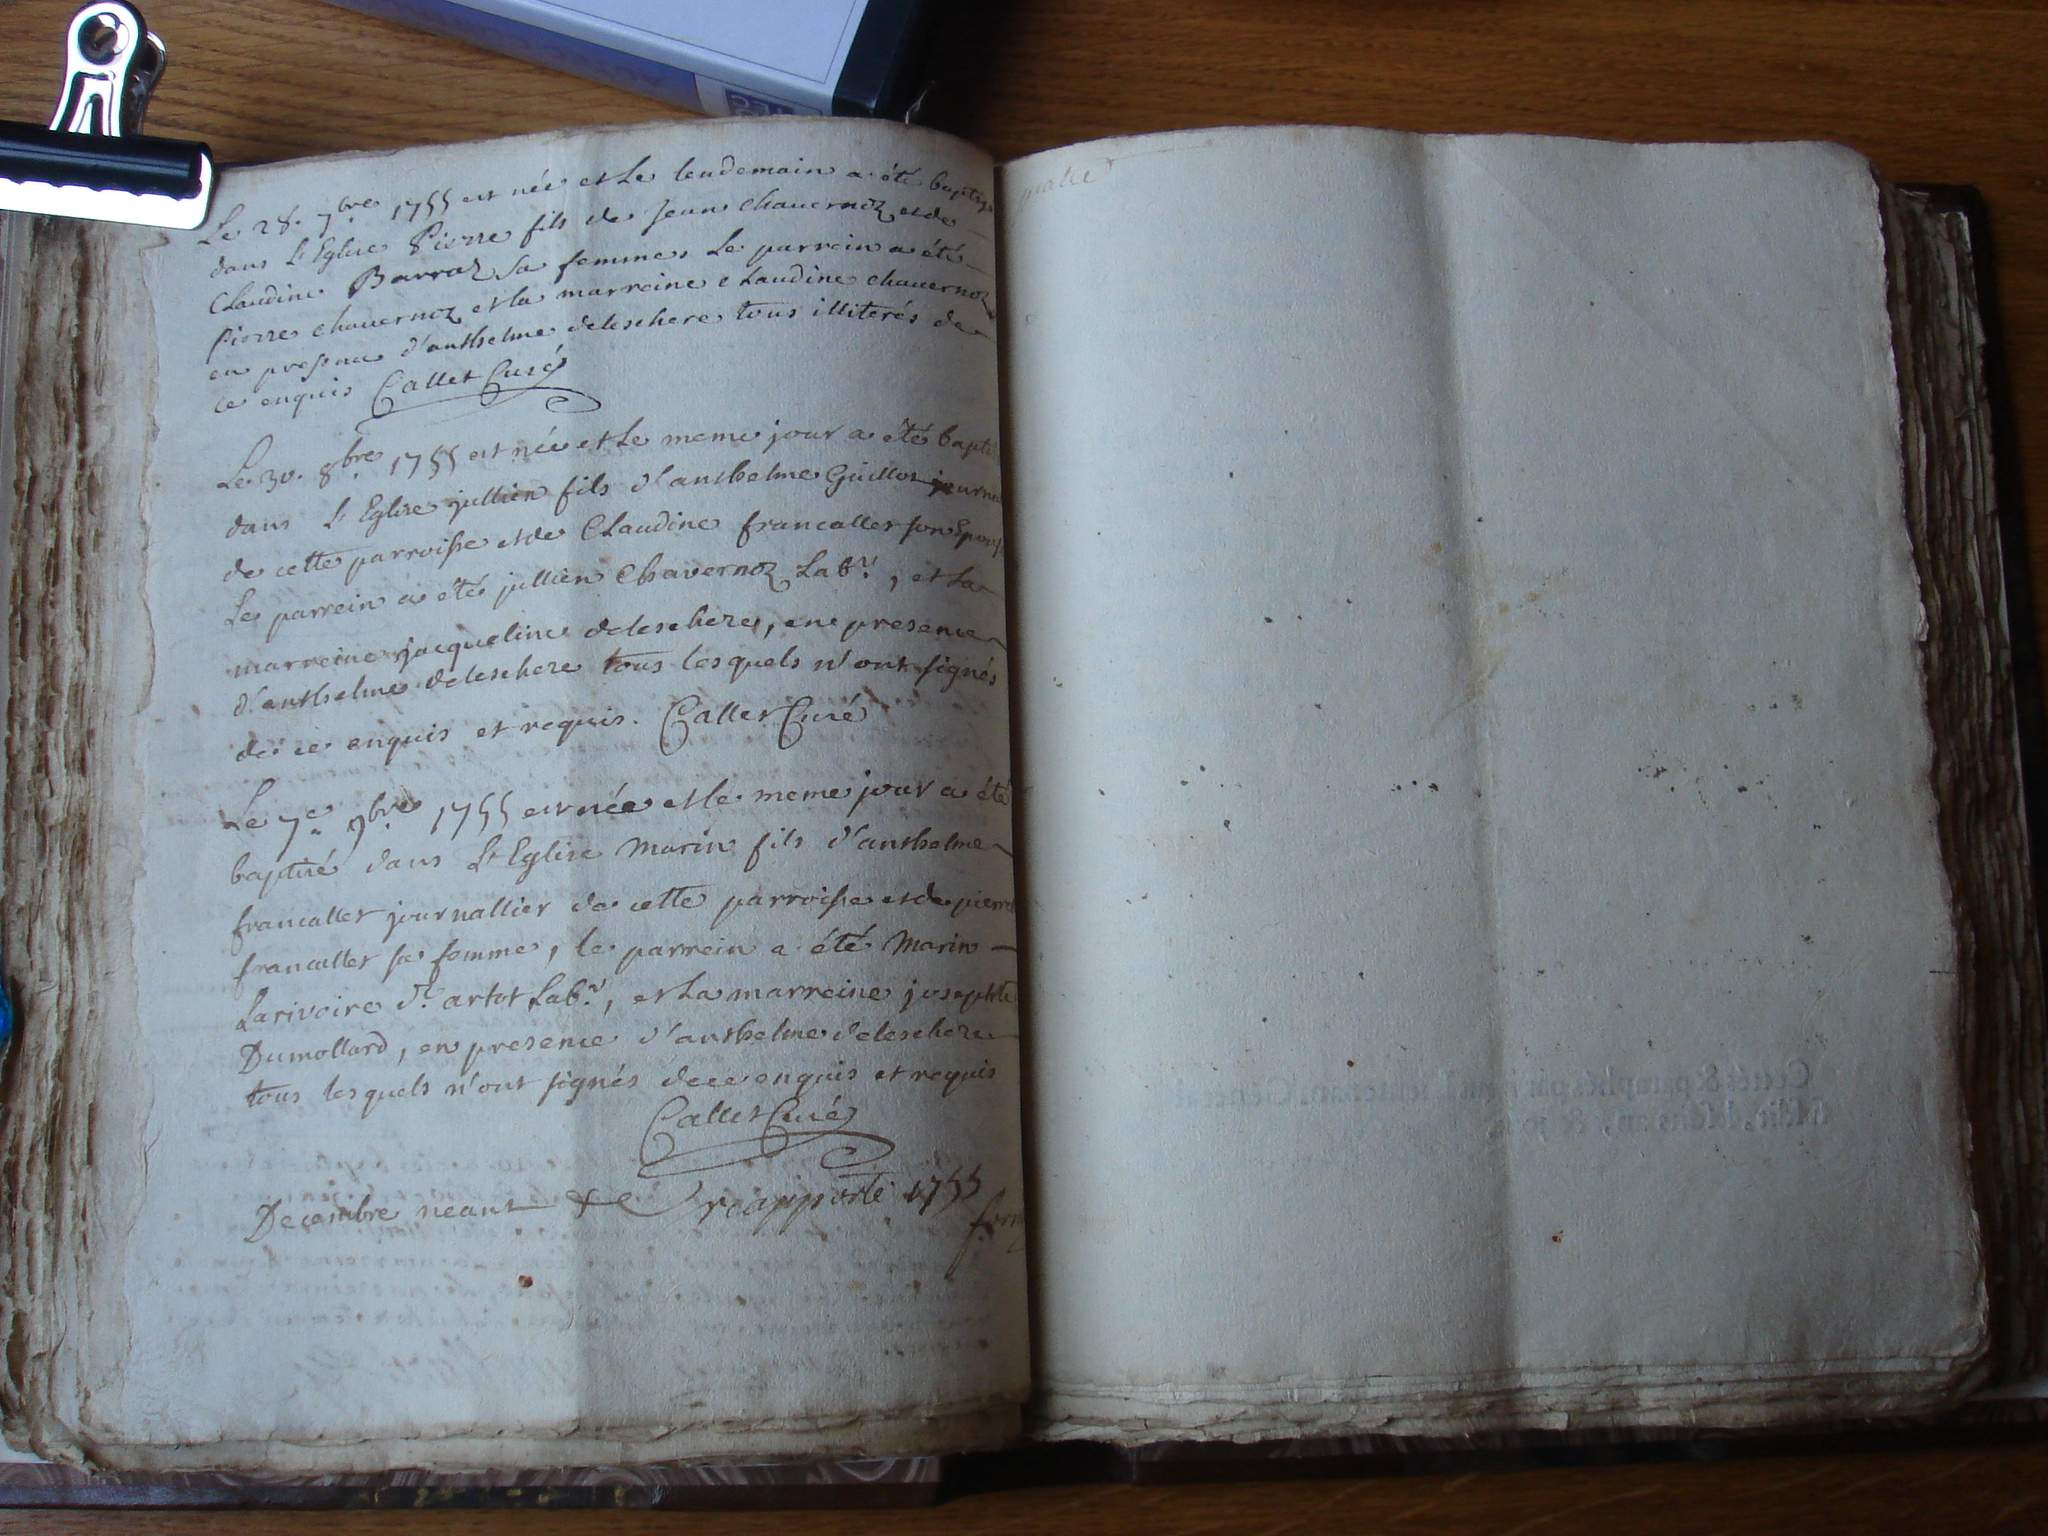 Le 28. 7bre 1755 est née et Le lendemain a été baptisé
dans L'Eglise Pierre fils de Jean Chavernoz et de
Claudine Barraz Sa femme Le parrein a été
Pierre Chavernoz et la marreine Claudine Chavernoz
en presence d'anthelme deleschere tous illiterés de
ce enquis Callet Curé
Le 30. 8bre 1755 est née et Le meme jour a été bapti
dans L'Eglise jullien fils d'anthelme Guillot journa
de cette parroisse et de Claudine francallet son Epouse
Le parrein a été jullien Chavernoz Labr, et La
marreine jacqueline deleschere, en presence
d'anthelme deleschere tous lesquels n'ont signés
de ce enquis et requis. Callet Curé
Le 7e 9bre 1755 est née et le meme jour a été
baptisé dans L'Eglise Marin fils d'anthelme
francallet journallier de cette parroisse et de pierre
francallet sa femme, le parrein a été Marin
Larivoire dt artot Labr, et La marreine josephte
Dumollard, en presence d'anthelme deleschere
tous lesquels n'ont signés de ce enquis et requis
Callet Curé
Decembre neant reapporté 1755